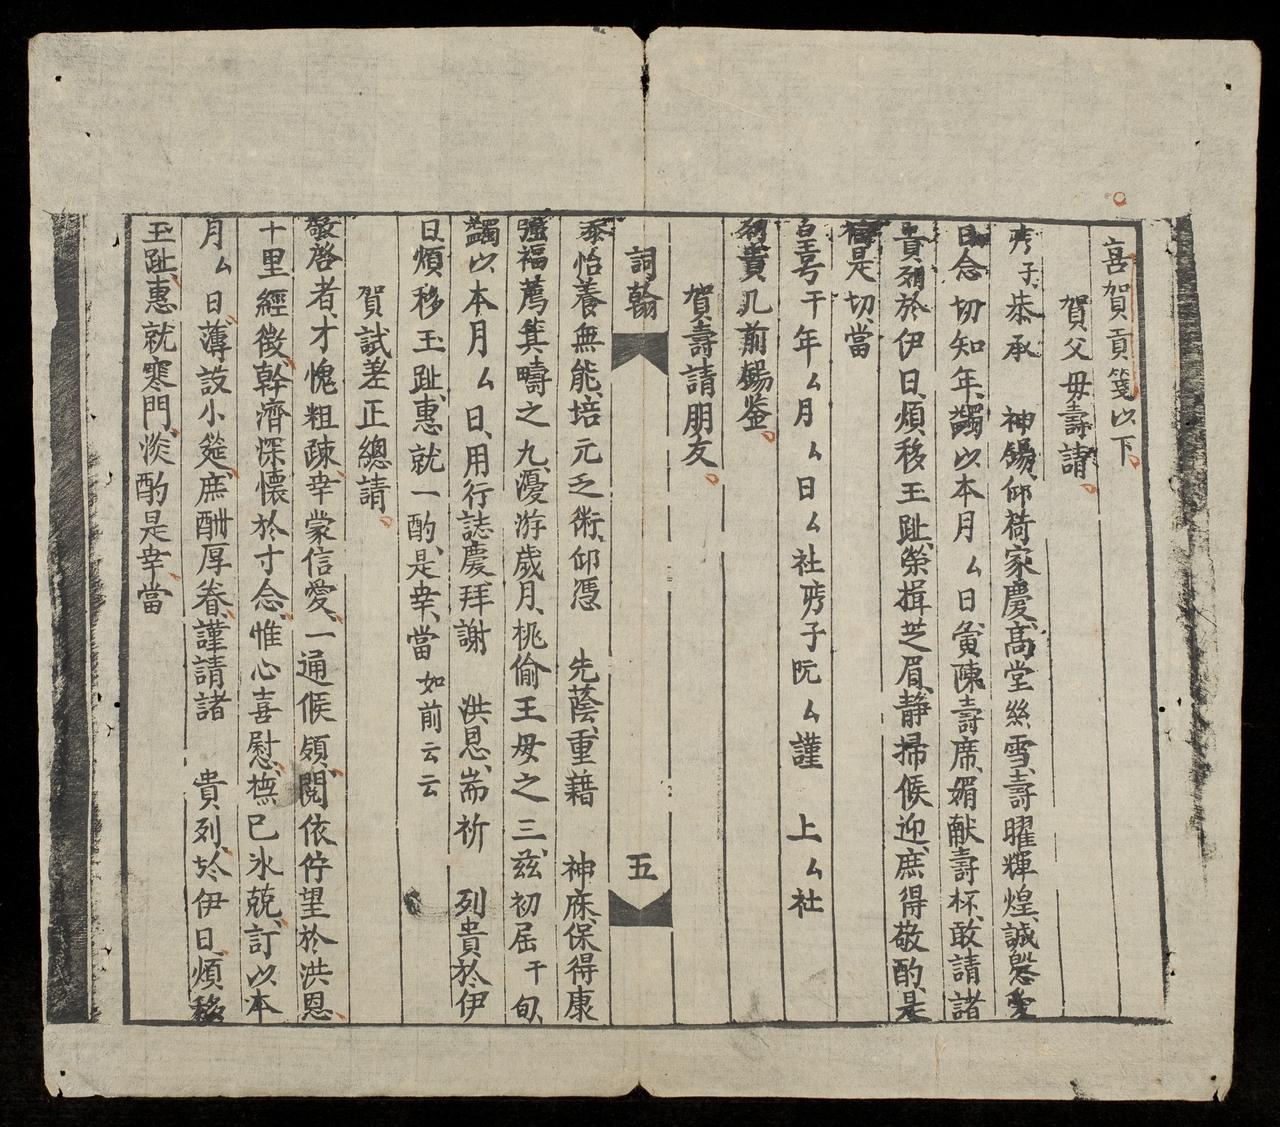 喜賀貢箋以下
賀父母壽請
子恭承 神錫仰荷家慶高堂絲雪壽曜輝煌誠慇愛
日念切知年蠲以本月厶日寅陳壽席媚献壽杯敢請諸
貴列於伊日煩移玉趾榮揖芝眉静掃候迎庶得敬酌是
福是切當
皇号干年厶月厶日厶社男子阮厶謹 上厶社
列貴几前錫鉴
賀壽請朋友
詞翰 五
忝怡養無能培元乏術仰憑 先蔭重藉 神庥保得康
彊福薦箕疇之九優游歲月桃偷王母之三兹初屆干旬
蠲以本月厶日用行誌慶拜謝 洪恩耑祈 列貴於伊
日煩移玉趾惠就一酌是幸當如前云云
賀試差正總請
敬啓者才愧粗疎幸蒙信愛一通候領閱依佇望於洪恩
十里經徵幹濟深懷於寸念惟心喜慰憮已氷兢訂以本
月厶日薄設小筵庶酬厚眷謹請諸 貴列於伊日煩移
玉趾惠就寒門淡酌是幸當